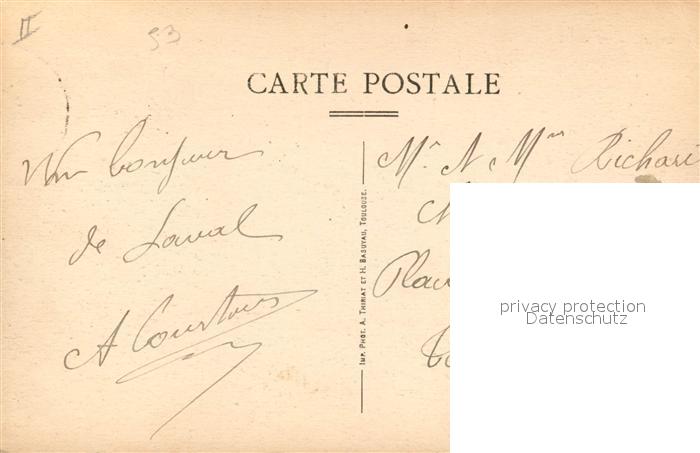 II
53
CARTE POSTALE
Un bonjour
de Laval
A Courtois
IMP. PHOT. A. THIRIAT ET H. BASUYAU, TOULOUSE.
Mr & Mme Richard
privacy protection
Datenschutz